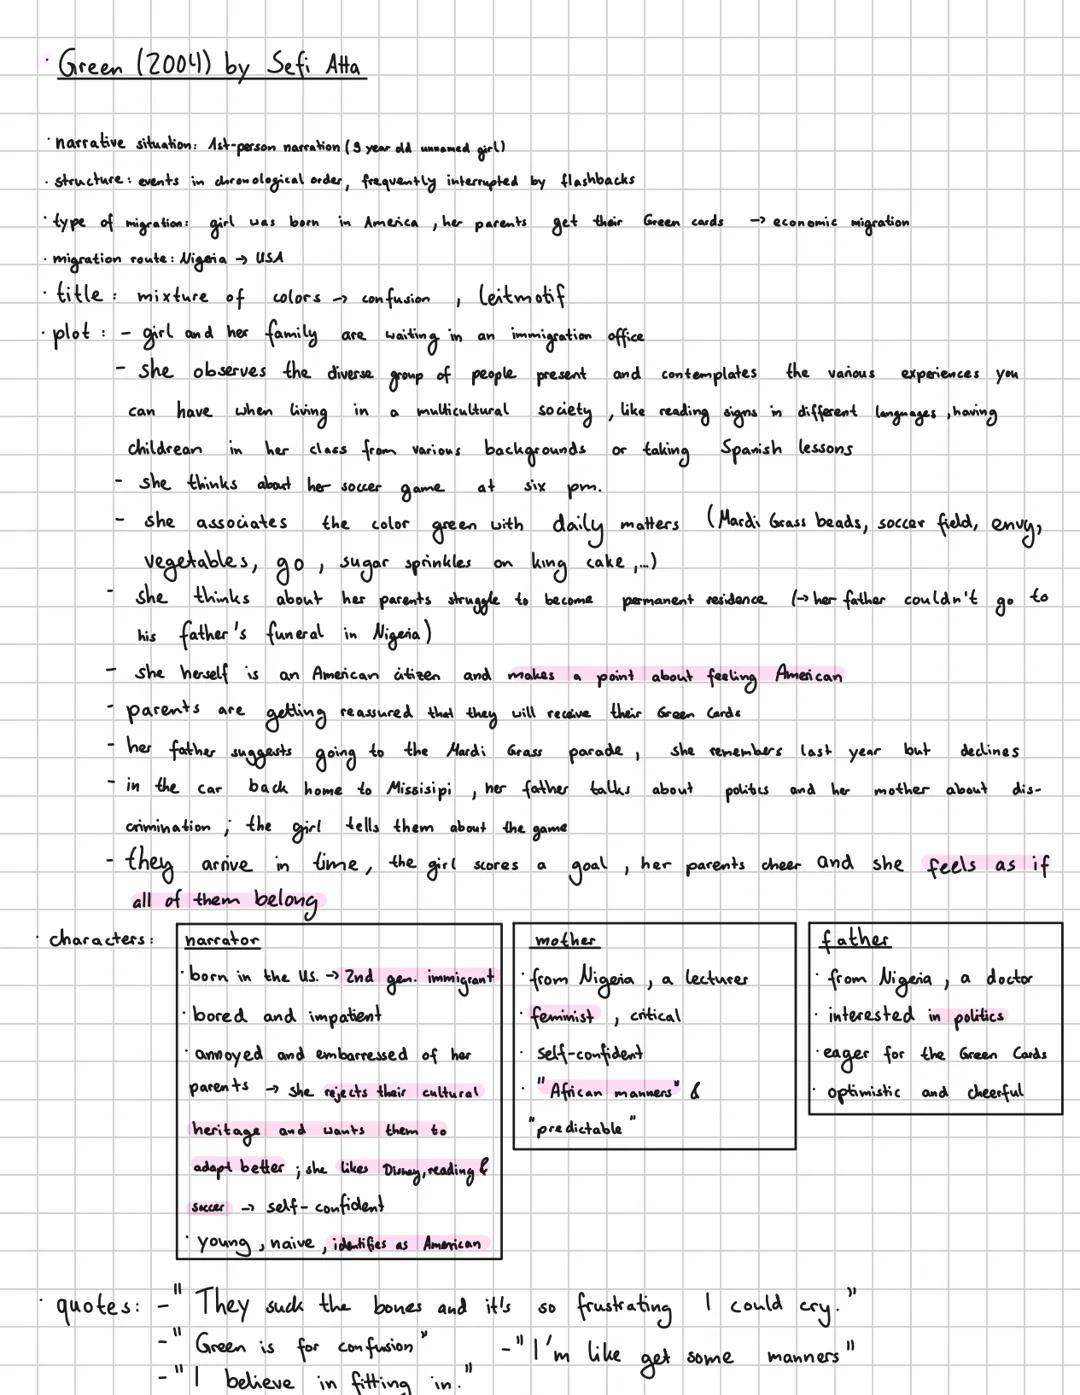 · Green (2004) by Sefi Atta
· narrative situation: 1st-person narration (9 year old unnamed girl)
· structure: events in chronological order, frequently interrupted by flashbacks
· type of migration: girl was born in America, her parents get their Green cards → economic migration
· migration route: Nigeria → USA
· title: mixture of colors → confusion, leitmotif
· plot: - girl and her family are waiting in an immigration office
- she observes the diverse group of people present and contemplates the various experiences you
can have when living in a multicultural society, like reading signs in different languages, having
childrean in her class from various backgrounds or taking Spanish lessons
- she thinks about her soccer game at six pm.
- she associates the color green with daily matters (Mardi Grass beads, soccer field, envy,
vegetables, go, sugar sprinkles on king cake,...)
- she thinks about her parents struggle to become permanent residence (→ her father couldn't go to
his father's funeral in Nigeria)
- she herself is an American citizen and makes a point about feeling American
- parents are getting reassured that they will receive their Green Cards
- her father suggests going to the Mardi Grass parade, she remembers last year but declines
- in the car back home to Missisipi, her father talks about politics and her mother about dis-
crimination; the girl tells them about the game
- they arrive in time, the girl scores a goal, her parents cheer and she feels as if
all of them belong
· characters:
narrator
· born in the US. → 2nd gen. immigrant
· bored and impatient
· annoyed and embarressed of her
parents → she rejects their cultural
heritage and wants them to
adapt better; she likes Disney, reading &
soccer → self-confident
· young, naive, identifies as American
mother
· from Nigeria, a lecturer
· feminist, critical
· self-confident
· "African manners" &
"predictable"
father
· from Nigeria, a doctor
· interested in politics
· eager for the Green Cards
· optimistic and cheerful
· quotes: - "They suck the bones and it's so frustrating I could cry."
- "Green is for confusion" - "I'm like get some manners"
- "I believe in fitting in."